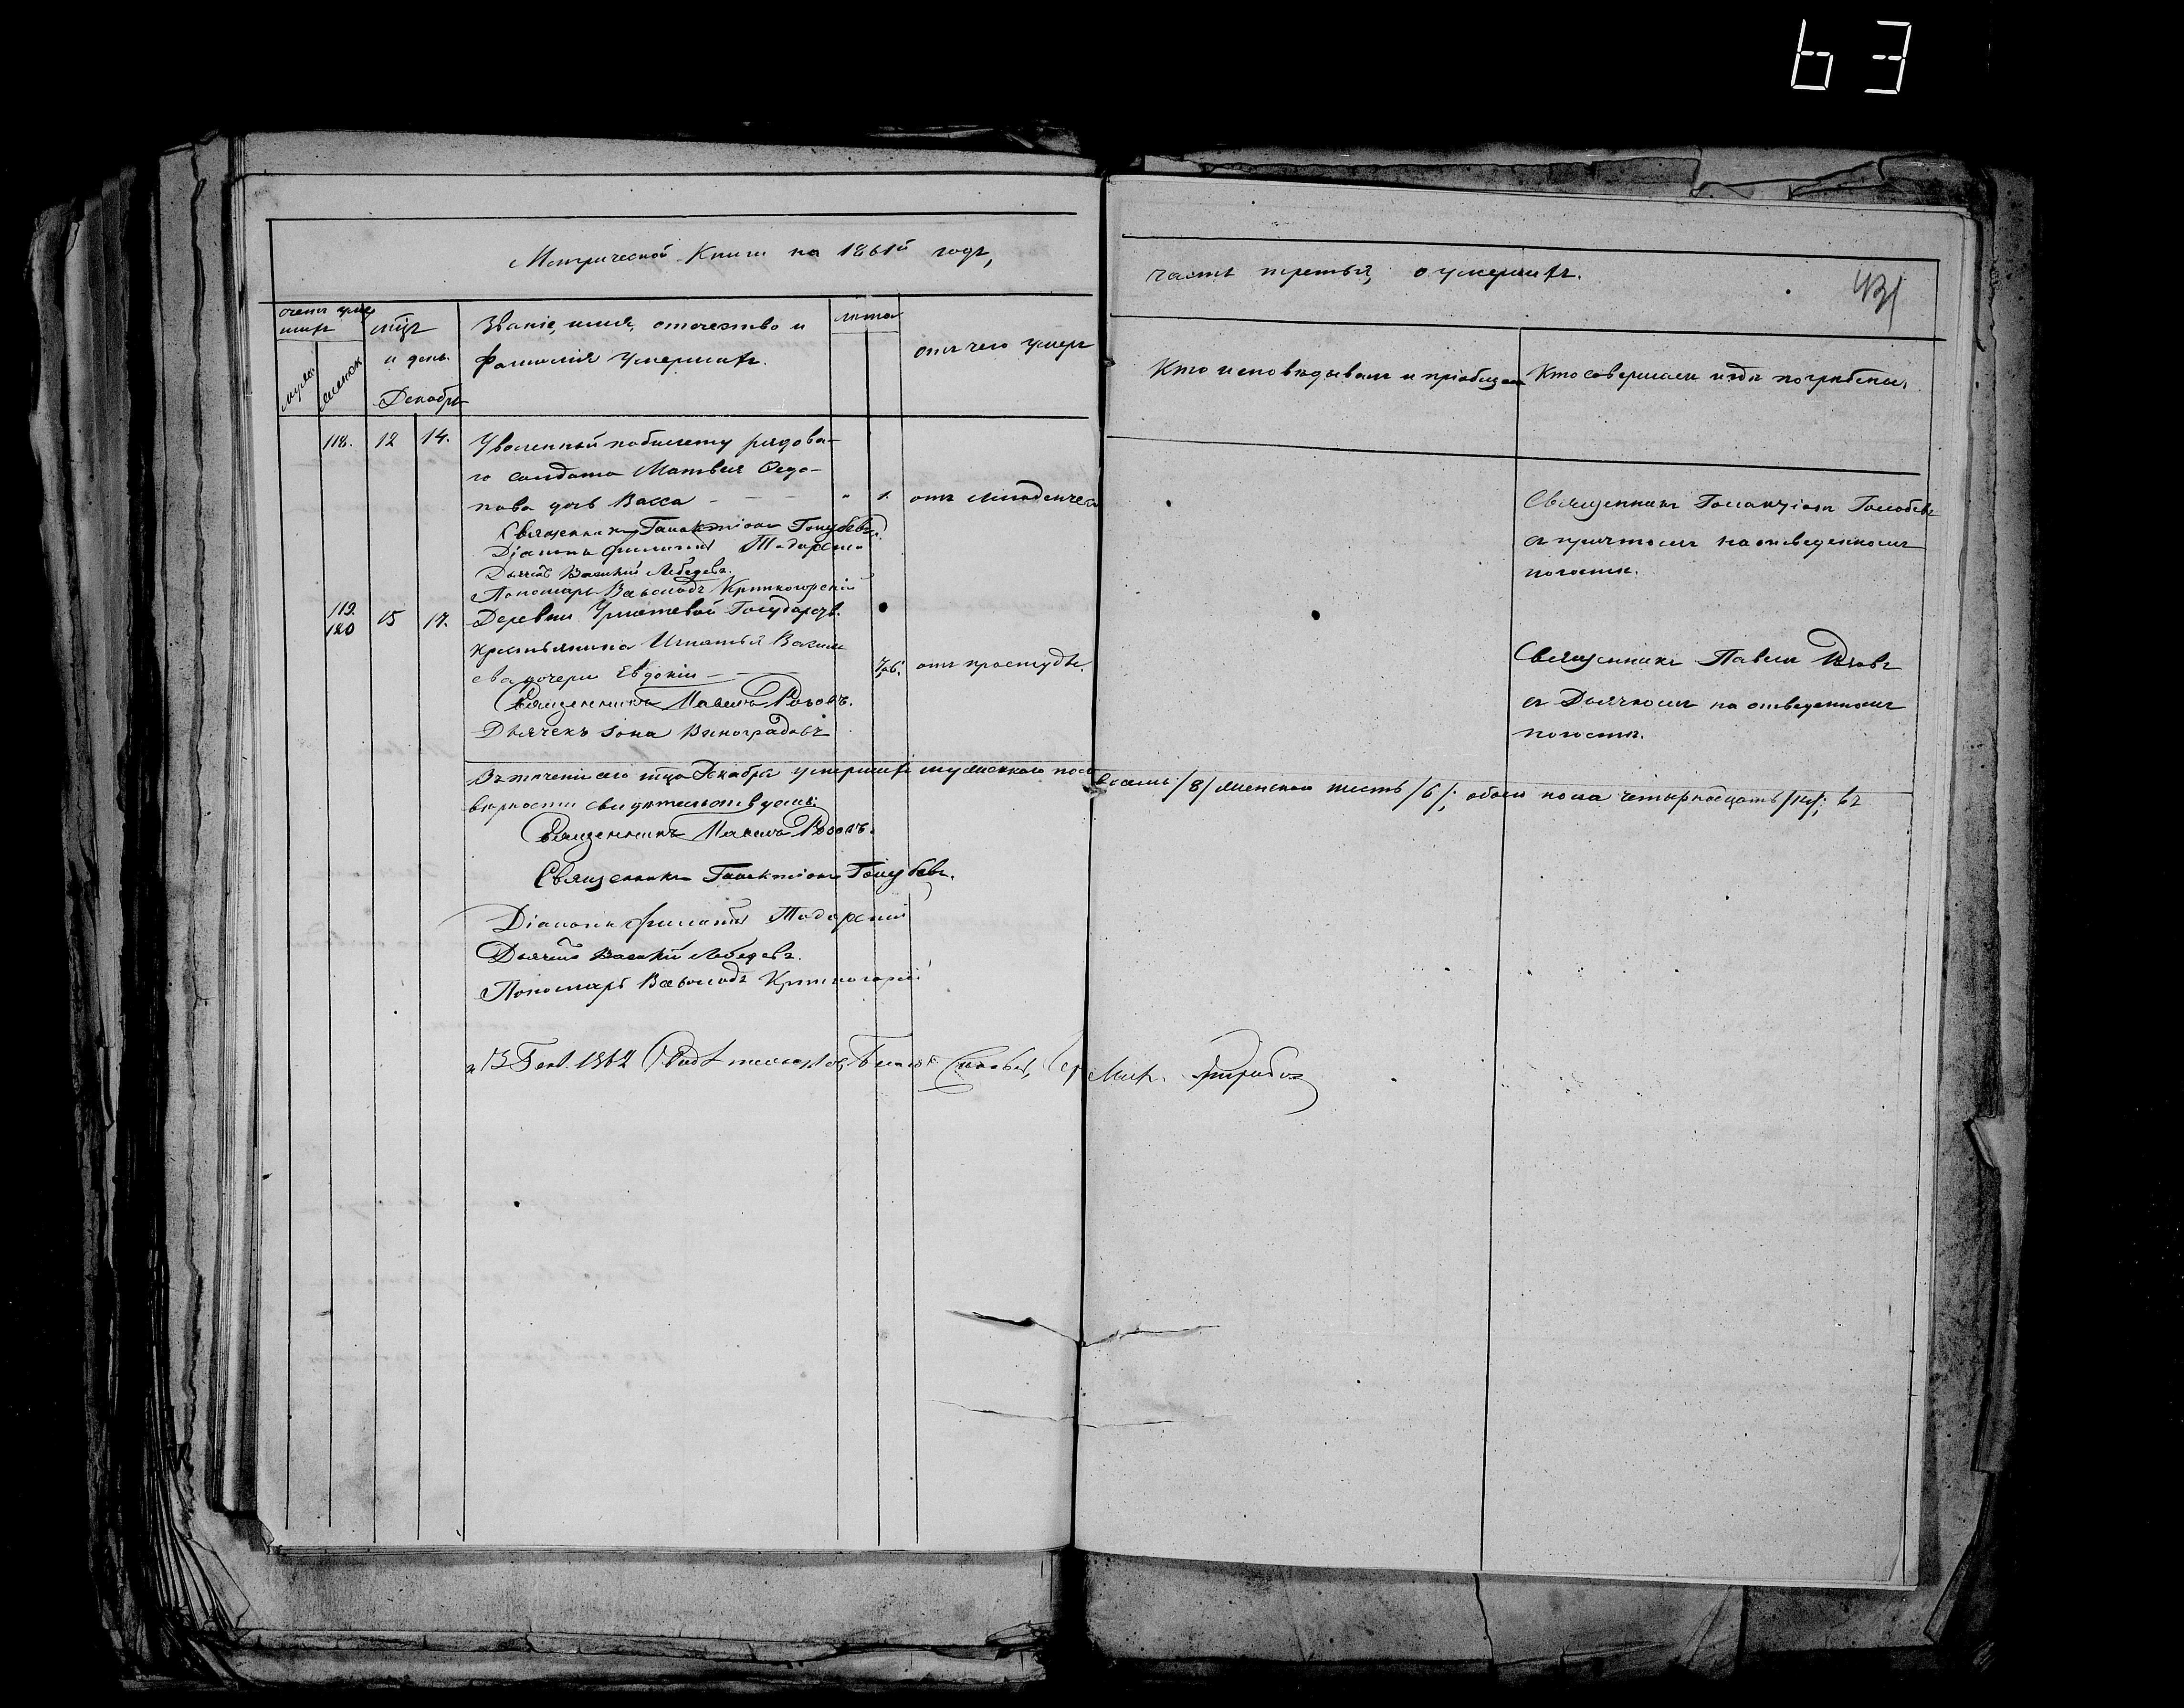 63
Метрической Книги на 1861й годъ,
часть третья, о умершихъ.
431
счетъ умер
шихъ
мужес.
женск.
мцъ
и день.
Декабрь
Званіе, имя, отчество и
фамилія умершихъ.
лѣта
отъ чего умеръ
Кто исповѣдывалъ и пріобщалъ
Кто совершалъ и гдѣ погребены.
118. 12 14. Уволенный по билету рядова-
го солдата Матвея Ѳедо-
това дочь Васса - - - " 1. отъ младенческ
Священникъ Галактіонъ Голубевъ.
Діаконъ Филиппъ Тодорскій
Дьячекъ Василій Лебедевъ.
Пономарь Всеволодъ Крутогорскій
Священникъ Галактіонъ Голубевъ
съ причтомъ на отведенномъ
погостѣ.
119.
120 15 17. Деревни Государств.
крестьянина Игнатья Василь
ева дочери Евдокіи - - отъ простуды.
Священникъ Павелъ Розовъ.
Дьячекъ Іона Виноградовъ
Священникъ Павелъ Розовъ
съ Дьячкомъ на отведенномъ
погостѣ.
Въ теченіи сего мца Декабря умершихъ мужескаго пола восемь /8/ женскаго шесть /6/; обоего пола четырнадцать /14/; въ
вѣрности свидѣтельствуемъ:
Священникъ Павелъ Розовъ.
Священникъ Галактіонъ Голубевъ.
Діаконъ Филиппъ Тодорскій
Дьячекъ Василій Лебедевъ.
Пономарь Всеволодъ Крутогорскій
13 Генв. 1862